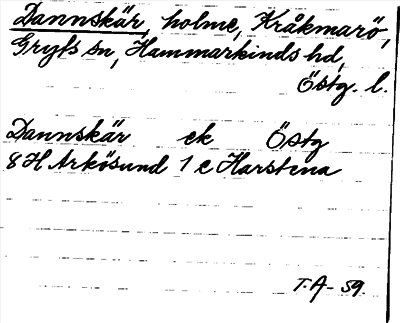 Dannskär, holme, Kråkmarö,
Gryts sn, Hammarkinds hd,
Östg. l.
Dannskär ek Östg
8 H Arkösund 1 c Harstena
T.A- 59.